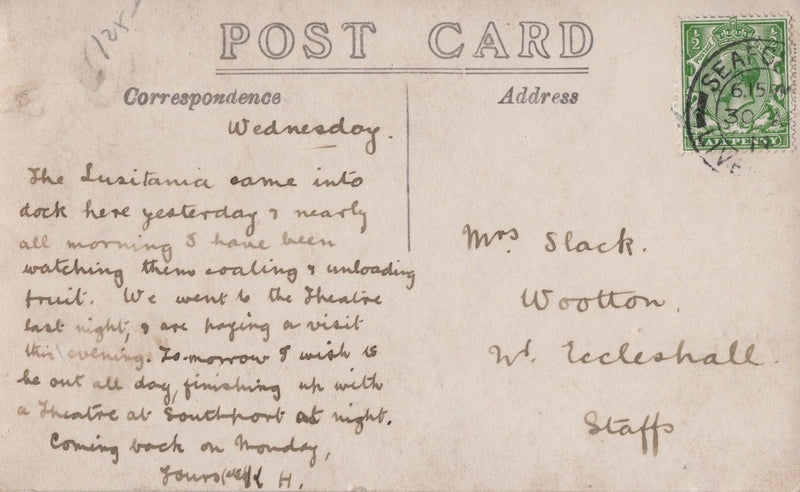 POST CARD
Correspondence
Address
Wednesday.
The Lusitania came into
dock here yesterday & nearly
all morning I have been
watching them coaling & unloading
fruit. We went to the Theatre
last night, & are paying a visit
this evening. To-morrow I wish to
be out all day, finishing up with
a Theatre at Southport at night.
Coming back on Monday,
Yours H.
Mrs Slack.
Wootton.
Nr Eccleshall.
Staffs
128
½
POSTAGE
HALFPENNY
SEAFO
6.15 P
30
LIVE